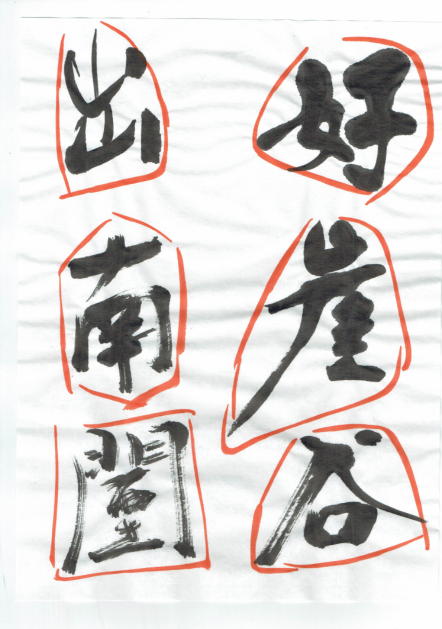 好崖谷
出南闉